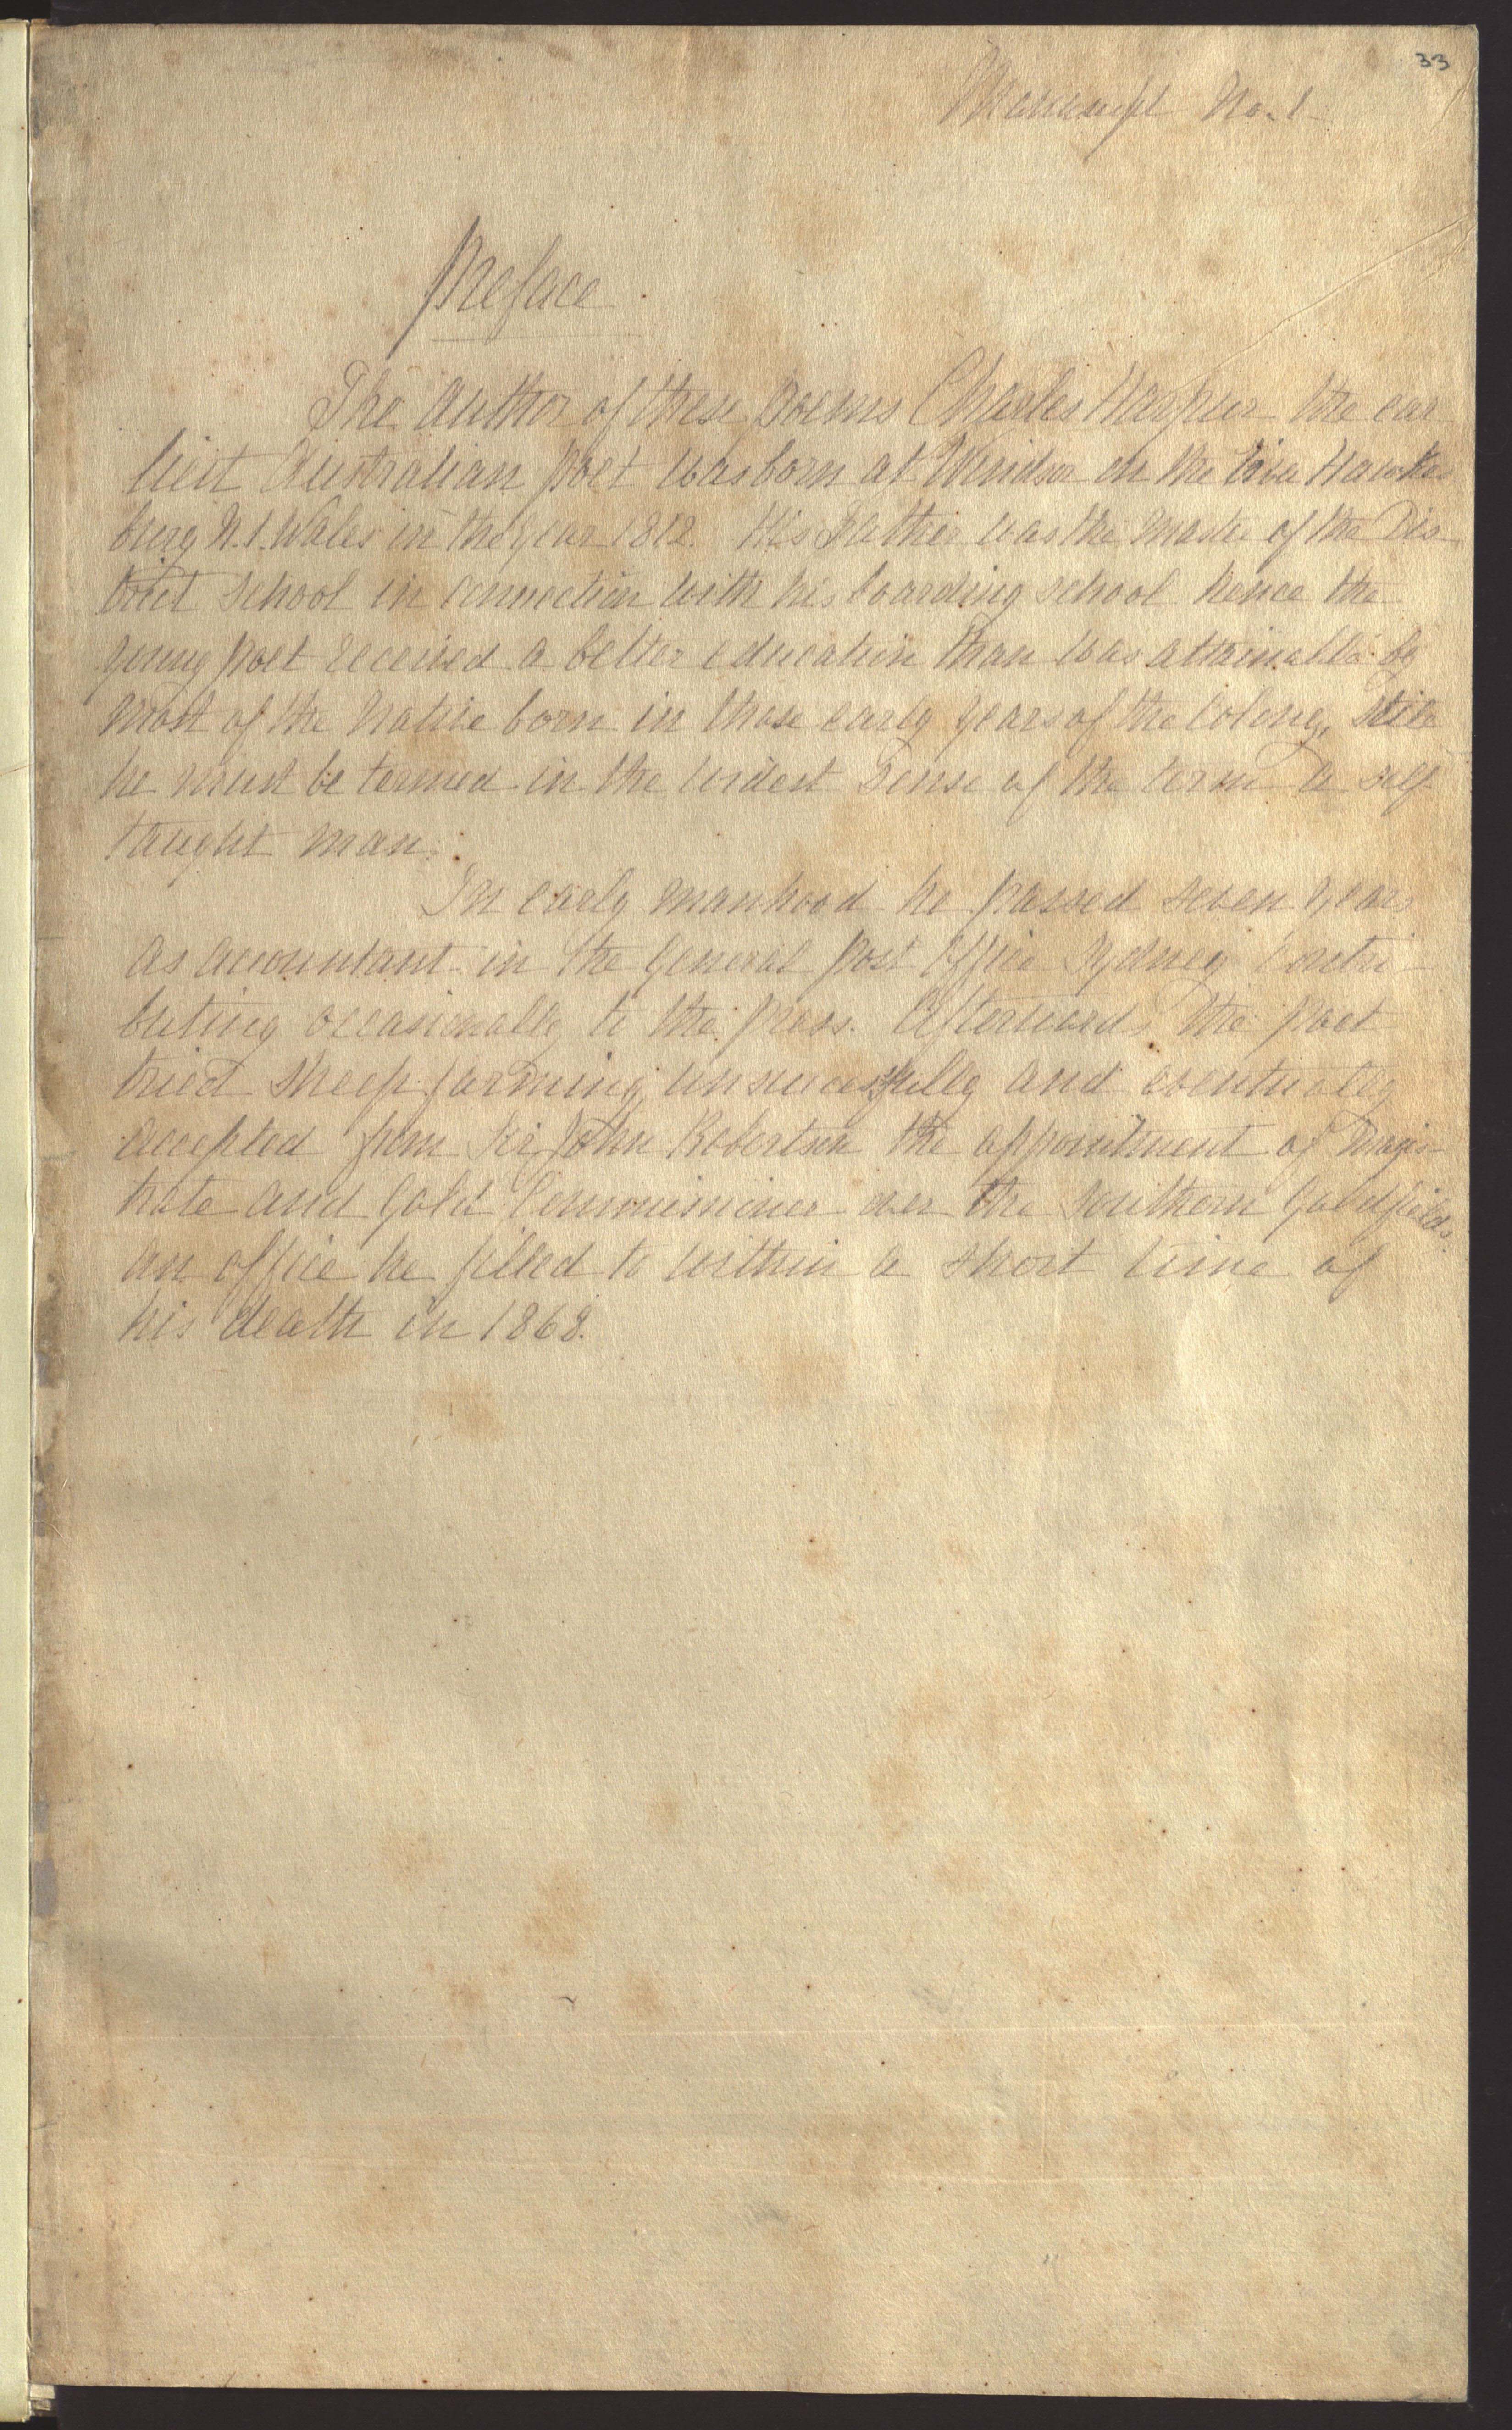 33
Manuscript No. 1
Preface
The Author of these poems Charles Harpur the ear
liest Australian poet was born at Windsor on the River Hawkes
burg N.S. Wales in the year 1812. His Father was the master of the Dis
trict School in connection with his boarding school hence the
young poet received a better education than was attainable by
most of the native born in those early years of the Colony, still
he must be termed in the widest sense of the term a self
taught man.
In early manhood he passed seven years
as accountant in the General Post Office Sydney contri-
buting occasionally to the press. Afterwards the poet
tried sheep farming unsuccessfully and eventually
accepted from Sir John Robertson the appointment of Magis-
trate and Gold Commissioner over the Southern Goldfields.
an office he filled to within a short time of
his death in 1868.